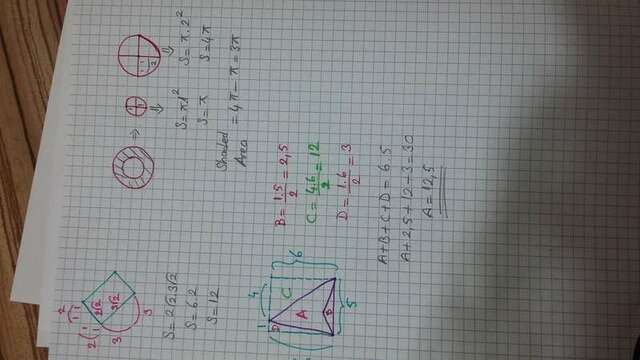 2
1 1
2
1
1
2√2
3
3√2
3
S = 2√2.3√2
S = 6.2
S = 12
1
1
2
S = π1²
S = π
S = π.2²
S = 4π
Shaded Area = 4π - π = 3π
1 4
D
C
6
A
B
5
B = 1.5/2 = 2,5
C = 4.6/2 = 12
D = 1.6/2 = 3
A+B+C+D = 6.5
A+2,5+12-3=30
A = 12,5